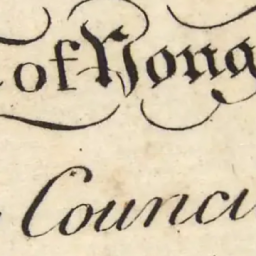 of Nova
Counci